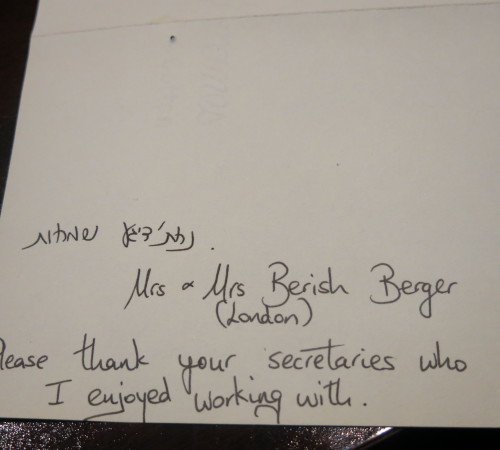 שמחות
Mrs & Mrs Berish Berger
(London)
lease thank your secretaries who
I enjoyed working with.